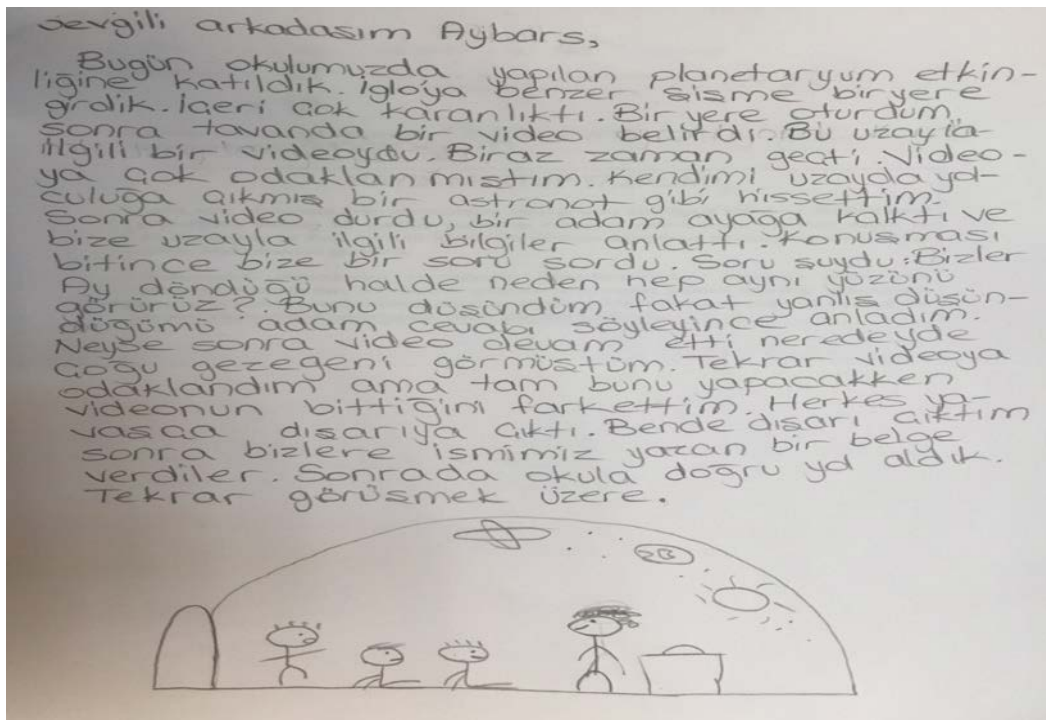 Sevgili arkadasım Aybars,
Bugün okulumuzda yapılan planetaryum etkin-
liğine katıldık. İgloya benzer şişme bir yere
girdik. İçeri çok karanlıktı. Bir yere oturdum
sonra tavanda bir video belirdi. Bu uzayla
ilgili bir videoydu. Biraz zaman geçti. Video-
ya çok odaklanmıştım. Kendimi uzayda yol-
culuğa çıkmış bir astronot gibi hissettim.
Sonra video durdu, bir adam ayağa kalktı ve
bize uzayla ilgili bilgiler anlattı. Konuşması
bitince bize bir soru sordu. Soru şuydu: Bizler
Ay döndüğü halde neden hep aynı yüzünü
görürüz?. Bunu düşündüm fakat yanlış düşün-
düğümü adam cevabı söyleyince anladım.
Neyse sonra video devam etti neredeyde
çoğu gezegeni görmüştüm. Tekrar videoya
odaklandım ama tam bunu yapacakken
videonun bittiğini farkettim. Herkes ya-
vaşça dışarıya çıktı. Bende dışarı çıktım
sonra bizlere ismimiz yazan bir belge
verdiler. Sonrada okula doğru yol aldık.
Tekrar görüşmek üzere.